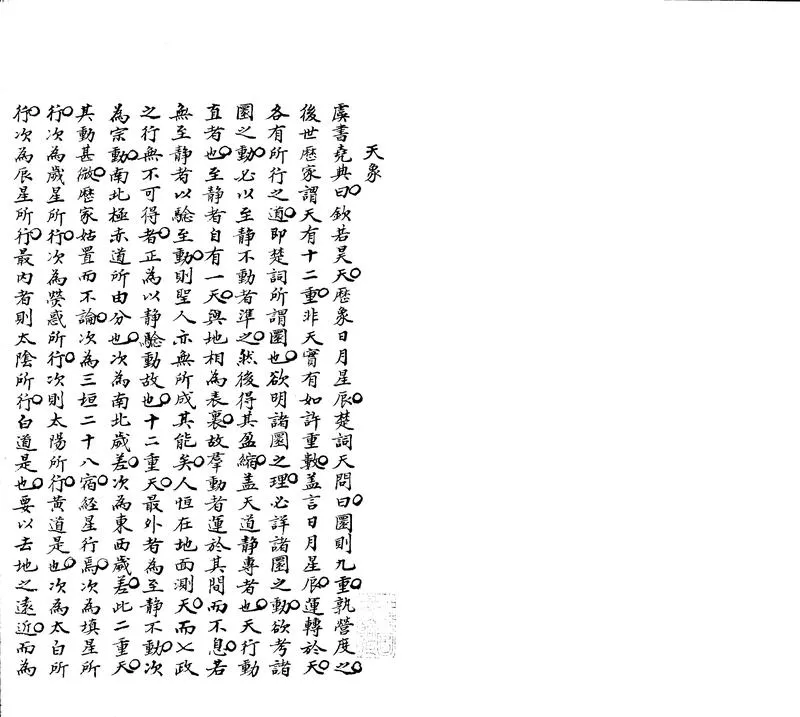 天象
虞書堯典曰欽若昊天厯象日月星辰楚詞天問曰圜則九重孰營度之
後世厯家謂天有十二重非天實有如許重數蓋言日月星辰運轉於天
各有所行之道即楚詞所謂圜也欲明諸圜之理必詳諸圜之動欲考諸
圜之動必以至静不動者準之然後得其盈縮蓋天道静專者也天行動
直者也至静者自有一天與地相為表裏故羣動者運於其間而不息若
無至静者以驗至動則聖人亦無所成其能矣人恒在地面測天而七政
之行無不可得者正為以静驗動故也十二重天最外者為至静不動次
為宗動南北極赤道所由分也次為南北歲差次為東西歲差此二重天
其動甚微厯家姑置而不論次為三垣二十八宿經星行焉次為填星所
行次為歲星所行次為熒惑所行次則太陽所行黄道是也次為太白所
行次為辰星所行最内者則太陰所行白道是也要以去地之遠近而為